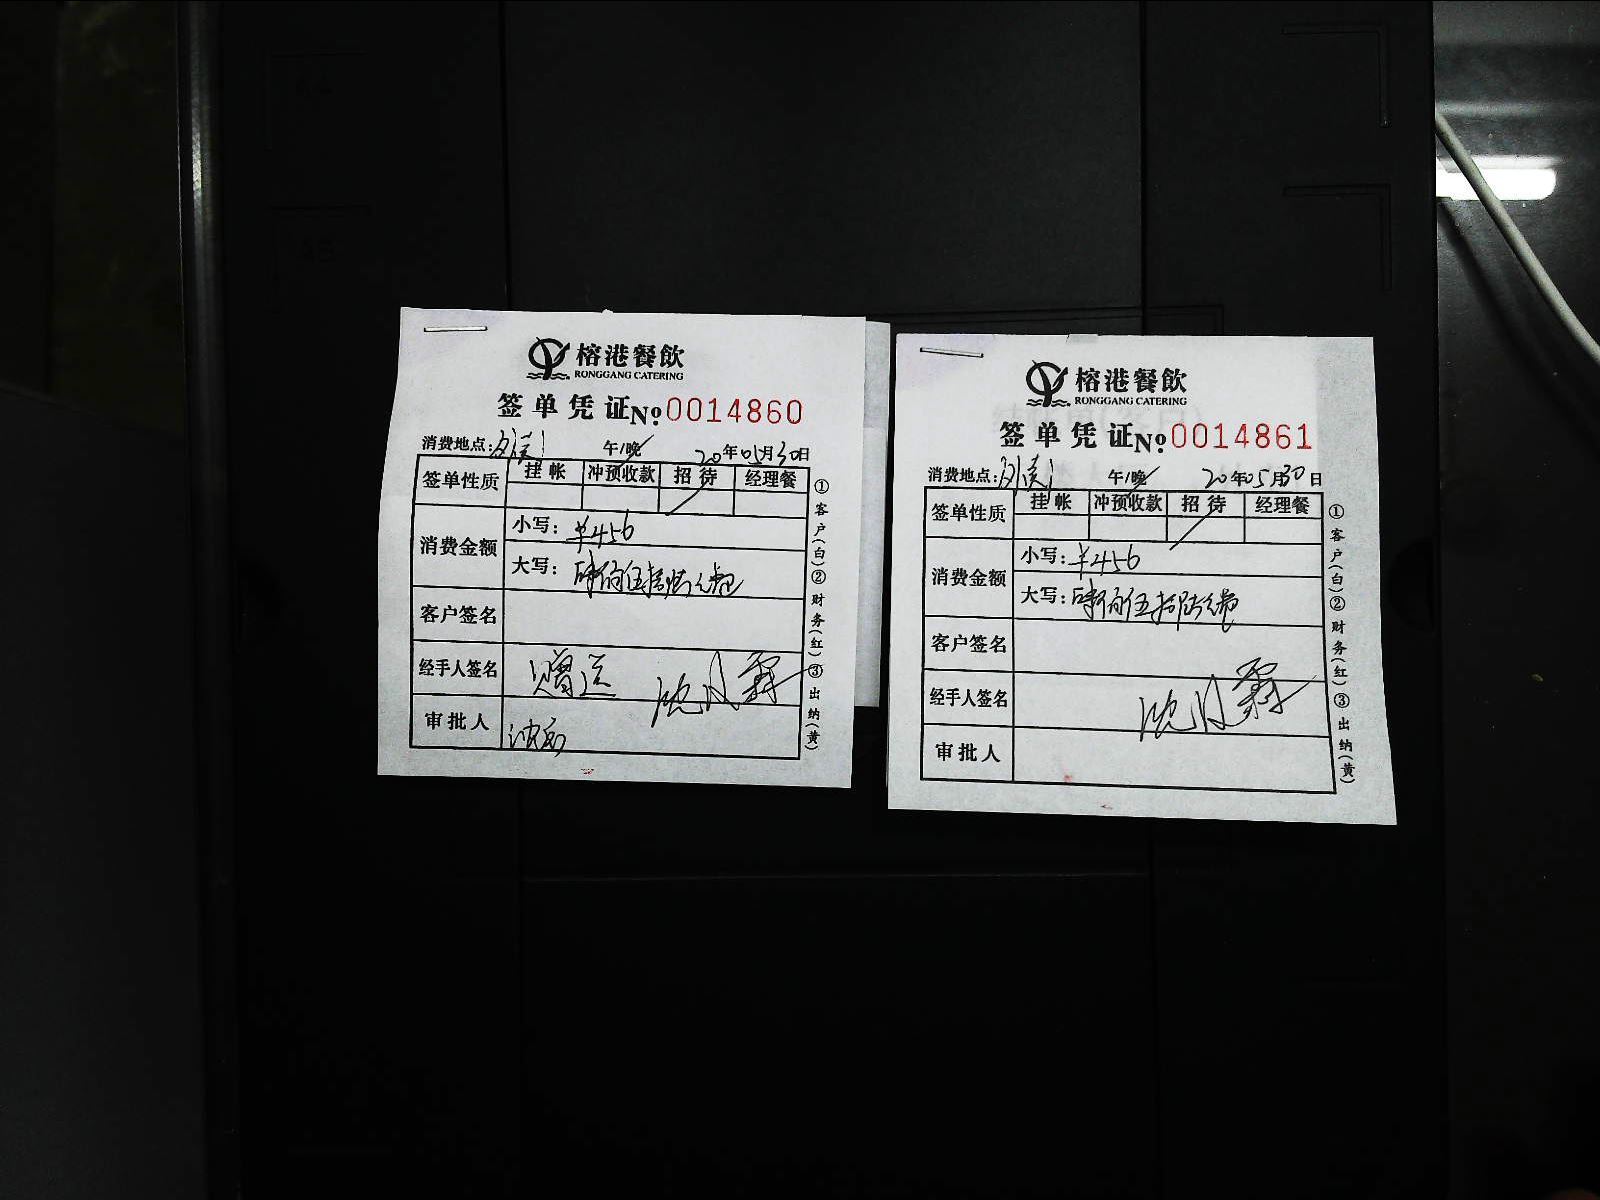 榕港餐飲
RONGGANG CATERING
签单凭证 No.0014860
消费地点: 午/晚 20年05月30日
签单性质 挂帐 冲预收款 招待 经理餐
消费金额 小写: ¥456
大写: 肆佰伍拾陆元整
客户签名
经手人签名 赠送
审批人
①客户(白)②财务(红)③出纳(黄)
榕港餐飲
RONGGANG CATERING
签单凭证 No.0014861
消费地点: 午/晚 20年05月30日
签单性质 挂帐 冲预收款 招待 经理餐
消费金额 小写: ¥456
大写: 肆佰伍拾陆元整
客户签名
经手人签名
审批人
①客户(白)②财务(红)③出纳(黄)